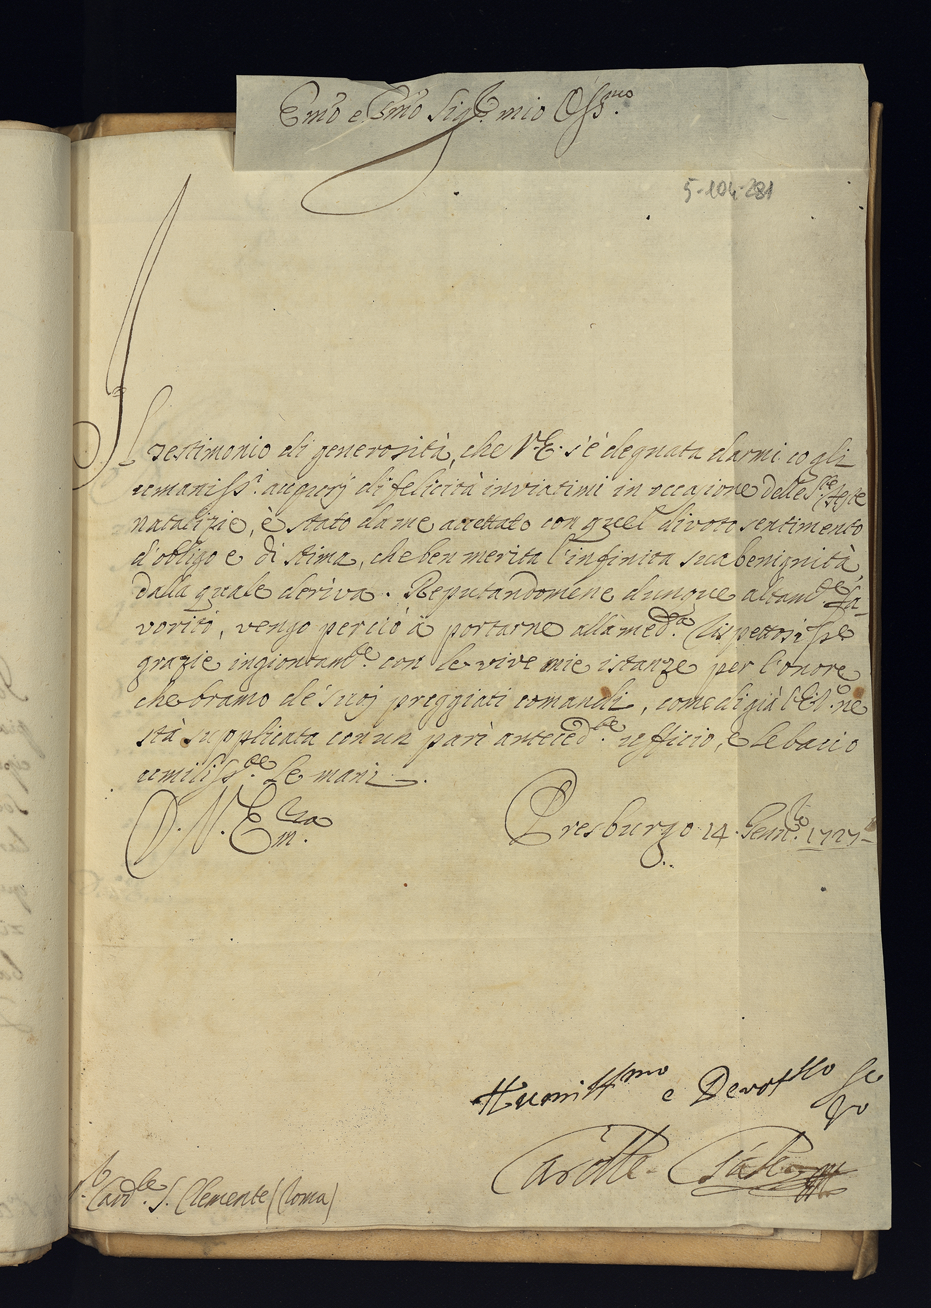 Em̃o e Em̃o Sigr. mio Oss.mo
5-104-281
Il testimonio di generosità, che V.E. s'è degnata darmi co gli
umaniss.i augurj di felicità inviatimi in occasione delle S.te feste
natalizie, è stato da me accettato con quel divoto sentimento
d'obligo e di stima, che ben merita l'infinita sua benignità
dalla quale deriva. Reputandomene dunque altam.te fa-
vorito, vengo perciò à portarne alla med.ma rispettosiss.e
grazie ingiontam.te con le vive mie istanze per l'onore
che bramo de' suoj preggiati comandi, come di già l'E.V. ne
stà supplicata con un pari anteced.te ufficio, e le bacio
umiliss.te le mani.
D. V. Em.za
Presburgo 14. Genn.ro 1727
Humill.mo e Devot.mo Se
vo
S.r Card.le S. Clemente (Roma)